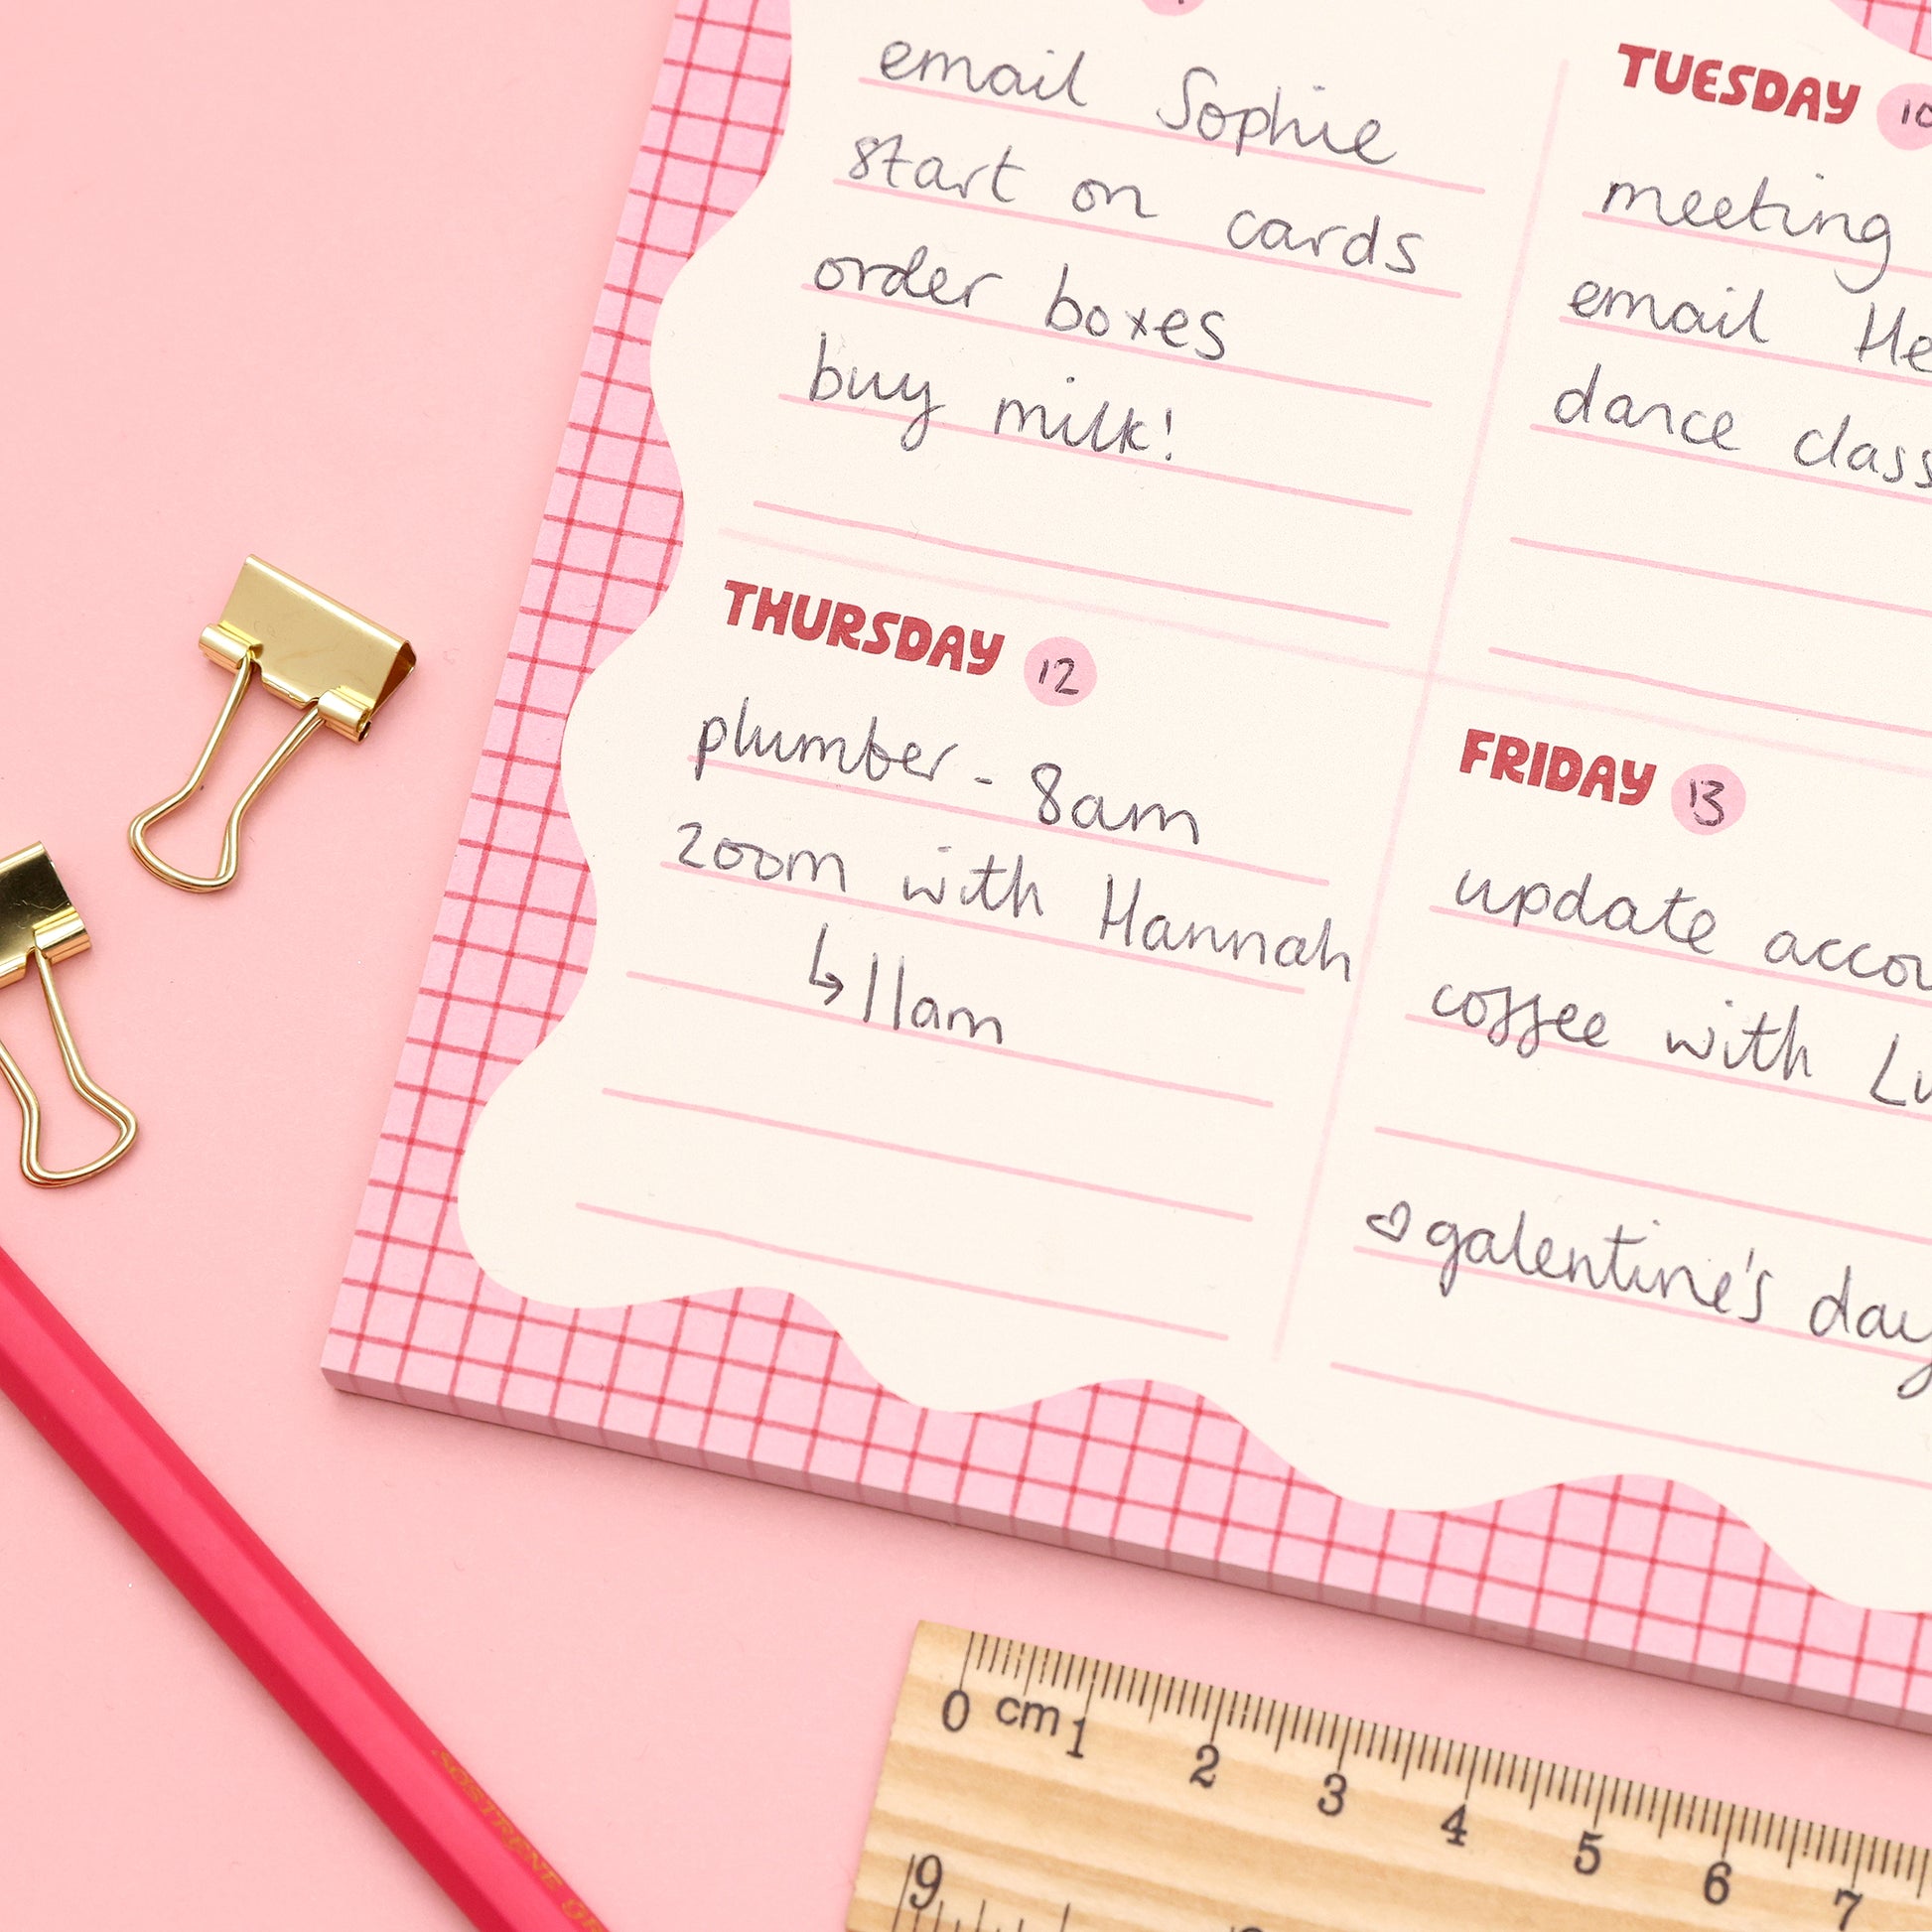 email Sophie
start on cards
order boxes
buy milk!
TUESDAY 10
meeting
email
dance class
THURSDAY 12
plumber - 8am
zoom with Hannah
↳ 11am
FRIDAY 13
update
coffee with
♡ galentine's day
0 cm 1 2 3 4 5 6 7
9
SOSTRENE